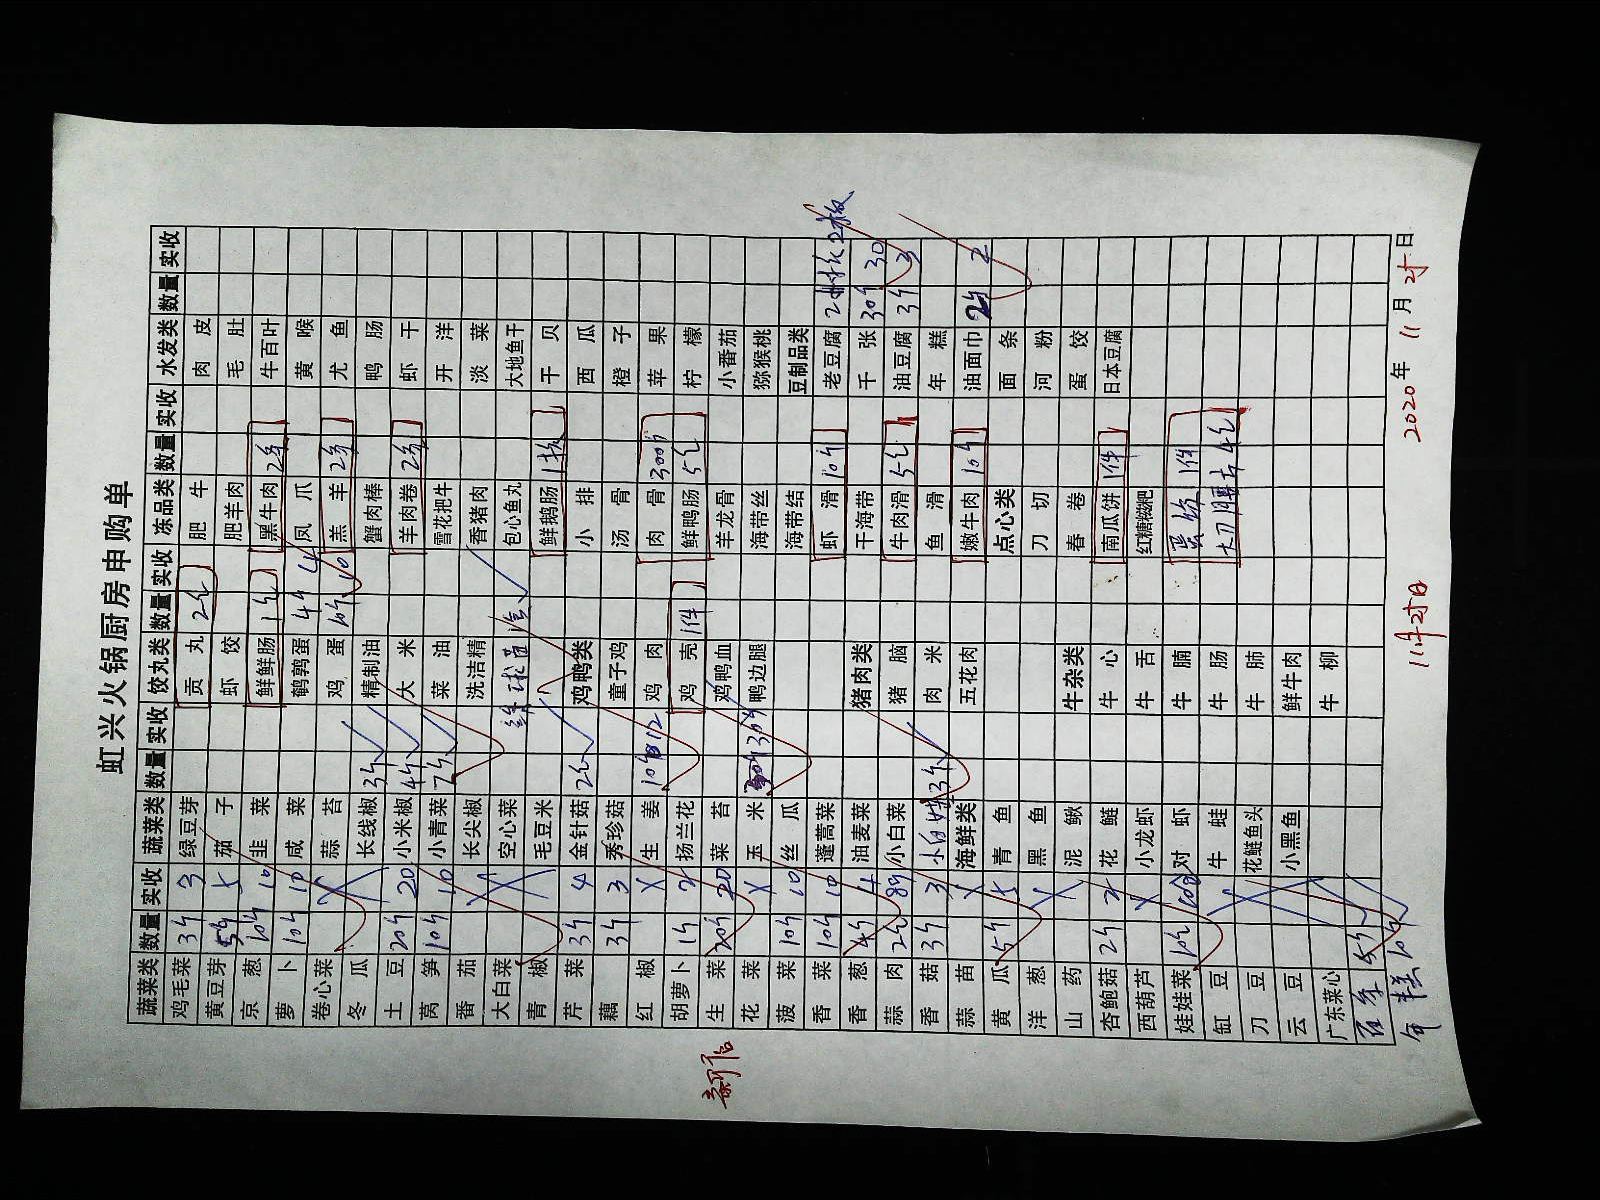 虹兴火锅厨房申购单
蔬菜类 数量 实收 蔬菜类 数量 实收 饺丸类 数量 实收 冻品类 数量 实收 水发类 数量 实收
鸡毛菜 3斤 3 绿豆芽 贡丸 2包 肥牛 肉皮
黄豆芽 5斤 5 茄子 虾饺 肥羊肉 毛肚
京葱 10斤 10 韭菜 鲜鲜肠 1包 黑牛肉 2条 牛百叶
萝卜 10斤 10 咸菜 鹌鹑蛋 4斤 4 凤爪 黄喉
卷心菜 X 蒜苔 鸡蛋 10斤 10 羔羊 2条 尤鱼
冬瓜 长线椒 3斤 精制油 蟹肉棒 鸭肠
土豆 20斤 20 小米椒 4斤 大米 羊肉卷 2条 虾干
莴笋 10斤 10 小青菜 7斤 菜油 雪花把牛 开洋
番茄 X 长尖椒 洗洁精 香猪肉 淡菜
大白菜 空心菜 包心鱼丸 大地鱼干
青椒 X 毛豆米 鲜鹅肠 1板 干贝
芹菜 3斤 4 金针菇 2包 鸡鸭类 小排 西瓜
藕 3斤 3 秀珍菇 童子鸡 汤骨 橙子
红椒 X 生姜 10斤 12 鸡肉 肉骨 300斤 苹果
胡萝卜 1斤 2 扬兰花 鸡壳 1件 鲜鸭肠 5包 柠檬
生菜 20斤 20 菜苔 鸡鸭血 羊龙骨 小番茄
花菜 X 玉米 30斤 30斤 鸭边腿 海带丝 猕猴桃
菠菜 10斤 10 丝瓜 海带结 豆制品类
香菜 10斤 10 蓬蒿菜 虾滑 10斤 老豆腐 2板 2板
香葱 4斤 4 油麦菜 猪肉类 干海带 千张 30斤 30
蒜肉 2包 8斤 小白菜 猪脑 牛肉滑 5包 油豆腐 3斤 3
香菇 3斤 3 3斤 肉米 鱼滑 年糕
蒜苗 X 海鲜类 五花肉 嫩牛肉 10斤 油面巾 2斤 2
黄瓜 5斤 5 青鱼 点心类 面条
洋葱 X 黑鱼 刀切 河粉
山药 泥鳅 牛杂类 春卷 蛋饺
杏鲍菇 2斤 2 花鲢 牛心 南瓜饼 1件 日本豆腐
西葫芦 X 小龙虾 牛舌 红糖糍粑
娃娃菜 10包 对虾 牛腩 蛋饺 1件
缸豆 X 牛蛙 牛肠 大刀腰片 4包
刀豆 花鲢鱼头 牛肺
云豆 X 小黑鱼 鲜牛肉
广东菜心 牛柳
西芹 5斤
年糕 10斤
11月25日 2020年11月25日